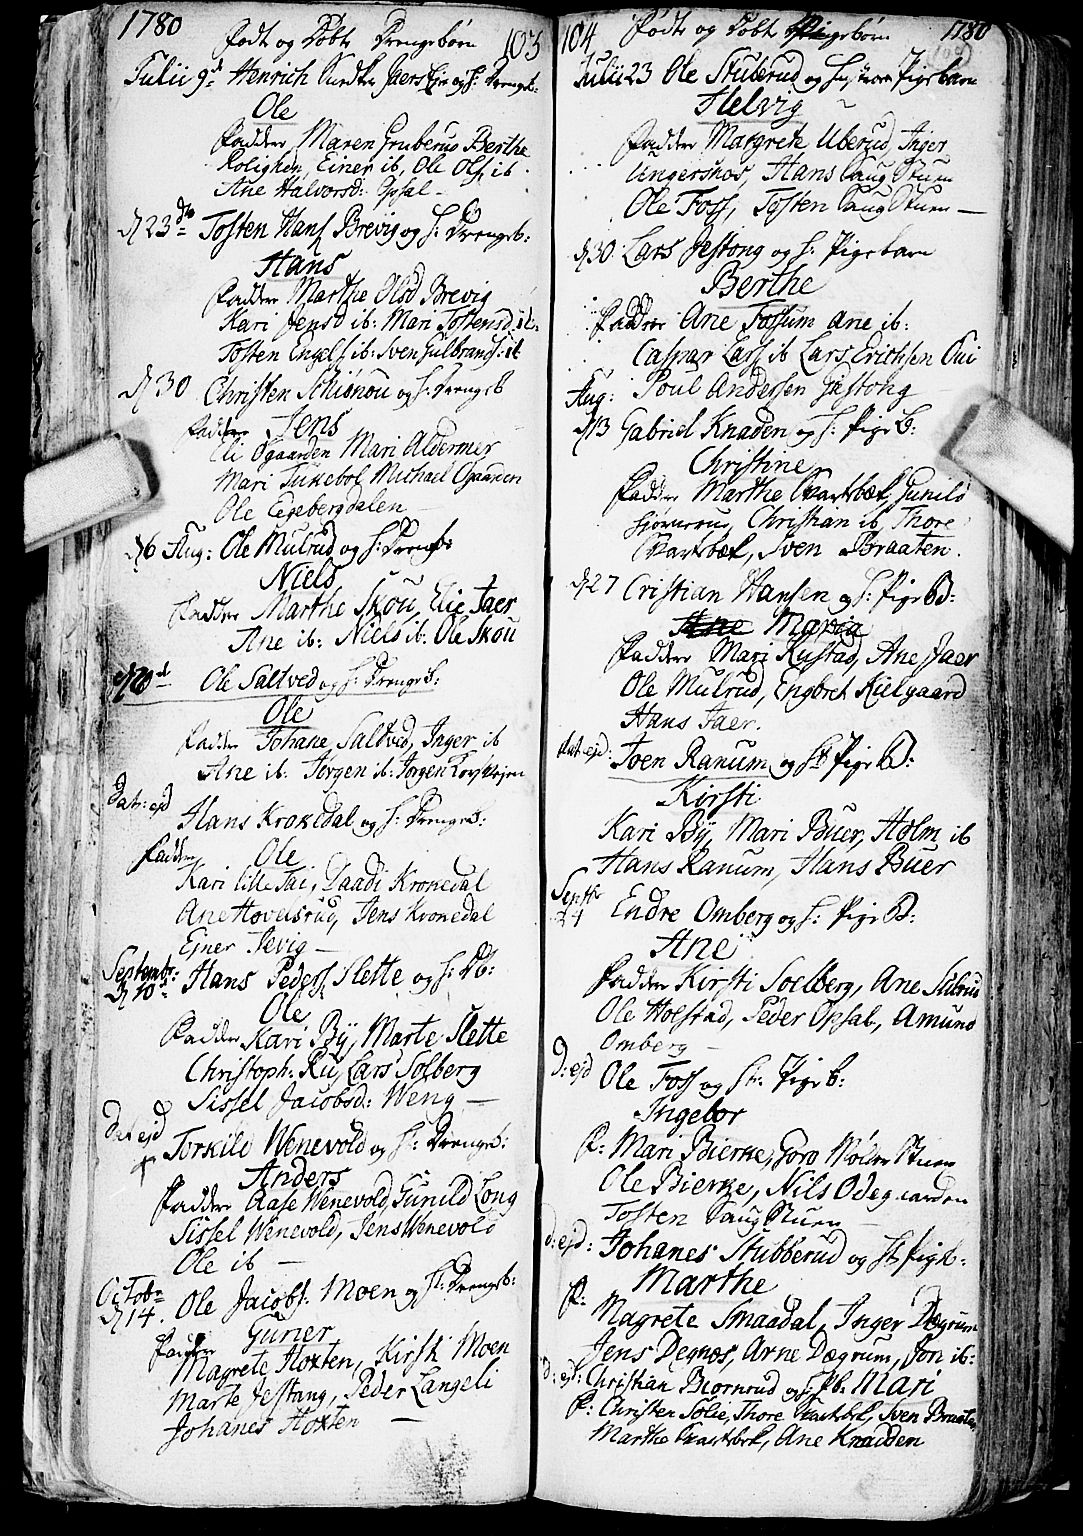 1780
Født og Døbt Drengebørn 103
Julii 9d Henrich Jaers Eje og H: Drengeb:
Ole
Faddere Maren Gruberus Berthe
Rolighed, Einer ib, Ole Ols. ib
Ane Halvorsd: Opsal -
D 23de Tosten Hans. Brevig og H: Drengeb:
Hans
Faddere Marthe Olsd Brevig
Kari Jensd ib: Mari Tostensd ib:
Tosten Engels. ib: Sven Gulbrands: ib
D 30 Christen Schiønou og H: Drengeb
Jens
Faddere
Eli Øgaarden Mari Aldermer
Mari Tukebøl Michael Øgaarden
Ole Egebergdalen
D 6 Aug: Ole Mulrud og H: Drengeb:
Niels
Faddere Marthe Skou, Elie Jaer
Ane ib: Niels ib: Ole Skou
D 20de Ole Saltved og H: Drengeb:
Ole
Faddere Johane Saltved, Inger ib
Ane ib: Jørgen ib: Jørgen
Dat: ejd Hans Krokedal og H: Drengeb:
Faddere Ole
Kari lille Jai, Paadi Krokedal
Ane Hovelsrud, Jens Kronedal
Ejner Sevig -
Septembr:
D 10de Hans Peders. Slette og H: Db:
Ole
Faddere Kari Bÿ, Marte Slette
Christoph: Ru, Lars Solberg
Sissel Jacobsd: Weng -
Dat ejd Torkild Wenevold og H: Drengeb:
Anders
Faddere Aase Wenevold, Gunild Long
Sissel Wenevold, Jens Wenevold
Ole ib -
Octobr
D 14. Ole Jacobs: Moen og H: Drengeb:
Guner
Faddere
Magrete Hoxten, Kirsti Moen
Marte Jestang, Peder Langeli
Johanes Hoxten -
104 Født og Døbt Pigebørn 1780
Julii 23 Ole Stuberud og Hustroes Pigebarn
Helvig
Faddere Margrete Uberud, Inger
Ungersnos, Hans Haug Stuen
Ole Foss, Tosten Haug Stuen -
D 30 Lars Jestong og H: Pigebarn
Berthe
Faddere Ane Fossum Ane ib:
Caspar Lars. ib Lars Erichsen Oui
Poul Andersen Gestong
Aug:
D 13 Gabriel Knaden og H: Pige B:
Christine
Faddere Marthe Svartbek, Gunild
Hiørnerud, Christian ib, Thore
Svartbek, Sven Braaten.
D 27 Cristian Hansen og H: Pige B:
Ane Maria
Faddere Mari Rustad, Ane Jaer
Ole Mulrud, Engbret Kielgaard
Hans Jaer.
Dat ejd: Joen Ranum og H: Pige B:
Kirsti
Kari Bÿ, Mari Buer, Holm ib
Hans Ranum, Hans Buer
Septbr
24 Endre Omberg og H: Pige B:
Ane
Faddere Kirsti Soelberg, Ane Stubrud
Ole Holstad, Peder Opsal, Amund
Omberg -
D: ejd Ole Foss og H: Pige b:
Ingebor
F: Mari Bierke, Goro Stuen
Ole Bierke, Nils Odegaarden
Tosten Haug Stuen -
D: ejd: Johanes Stubberud og H: Pigeb:
Marthe
F:
Magrete Smaadal, Inger Dægrum
Jens Degnes, Arne Dægrum, Jon ib:
D: ejd: Christian Biornrud og H: Pb: Mari
F: Christen Solie, Thore Svartbek, Sven Braaten
Marthe Svartbek, Ane Knadden